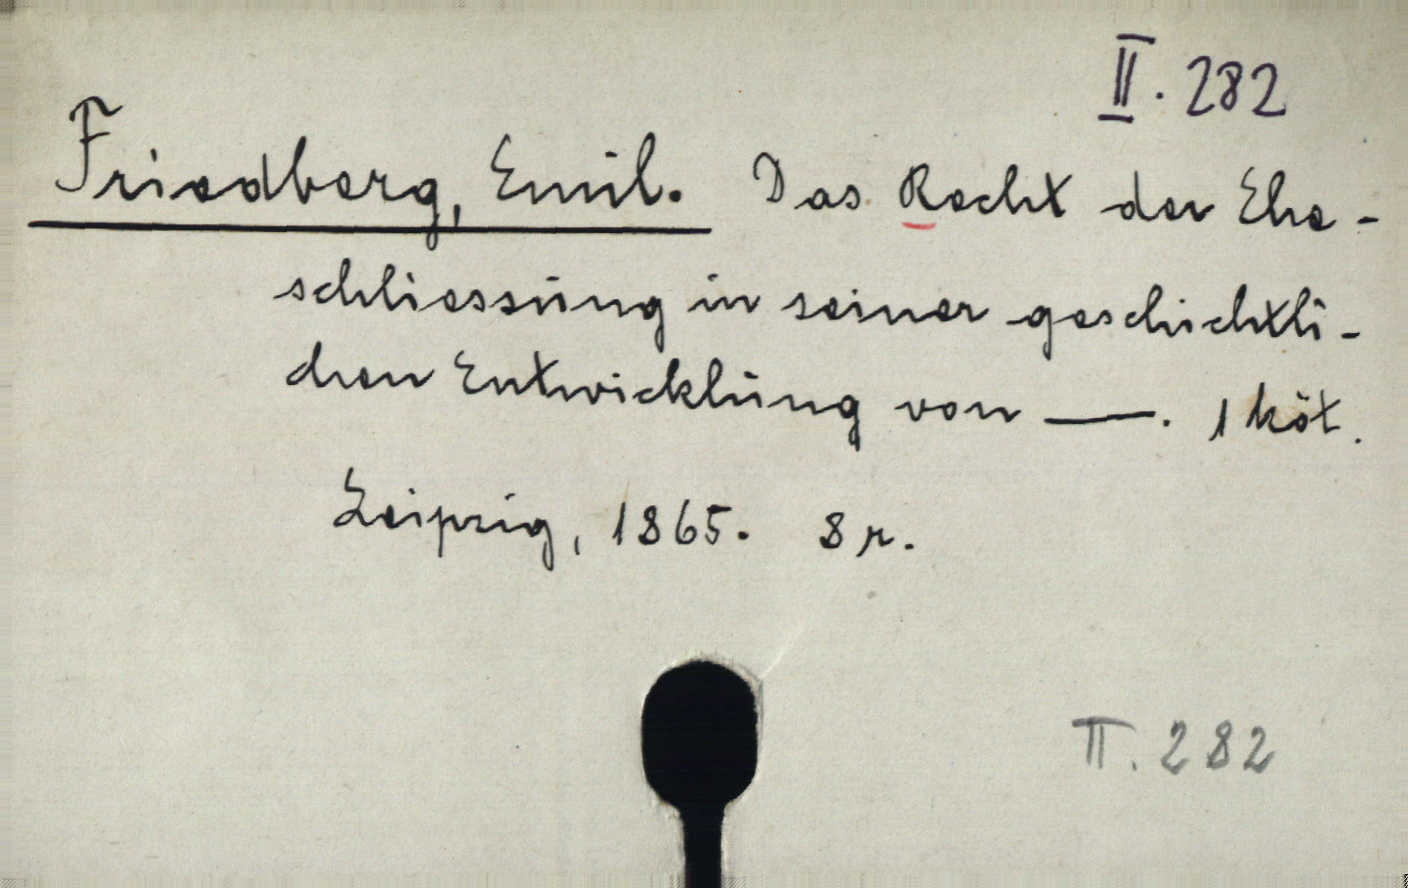 II. 282
Friedberg, Emil. Das Recht der Ehe-
schliessung in seiner geschichtli-
chen Entwicklung von —. 1 köt.
Leipzig, 1865. 8 r.
II. 282